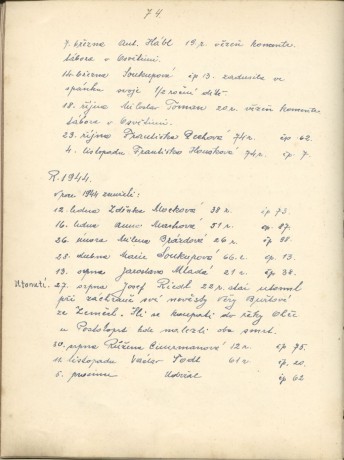 74.
7. března Ant. Hábl 19 r. vězeň koncentr.
tábora v Osvětimi.
14. března Soukupová čp 13. zadusila ve
spánku svoje 1/2 roční dítě.
18. října Miloslav Toman 20 r. vězeň koncentr.
tábora v Osvětimi.
23. října Františka Pechová 74 r. čp. 62.
4. listopadu Františka Housková 74 r. čp. 7.
R. 1944.
V roce 1944 zemřeli:
12. ledna Zdeňka Macková 38 r. čp 73.
16. ledna Anna Machová 51 r. čp. 87.
26. února Milena Brázdová 26 r. čp 88.
28. dubna Marie Soukupová 66 r. čp. 13.
13. srpna Jaroslava Mladá 21 r. čp 38.
Utonutí. 27. srpna Josef Riedl 22 r. starý utonul
při záchraně své nevěsty Věry
ze Zeměch. Šli se koupati do řeky Ohře
u Postoloprt kde nalezli oba smrt.
30. srpna Růžena Cimrmanová 12 r. čp 75.
11. listopadu Václav 61 r čp. 20.
5. prosince čp 62